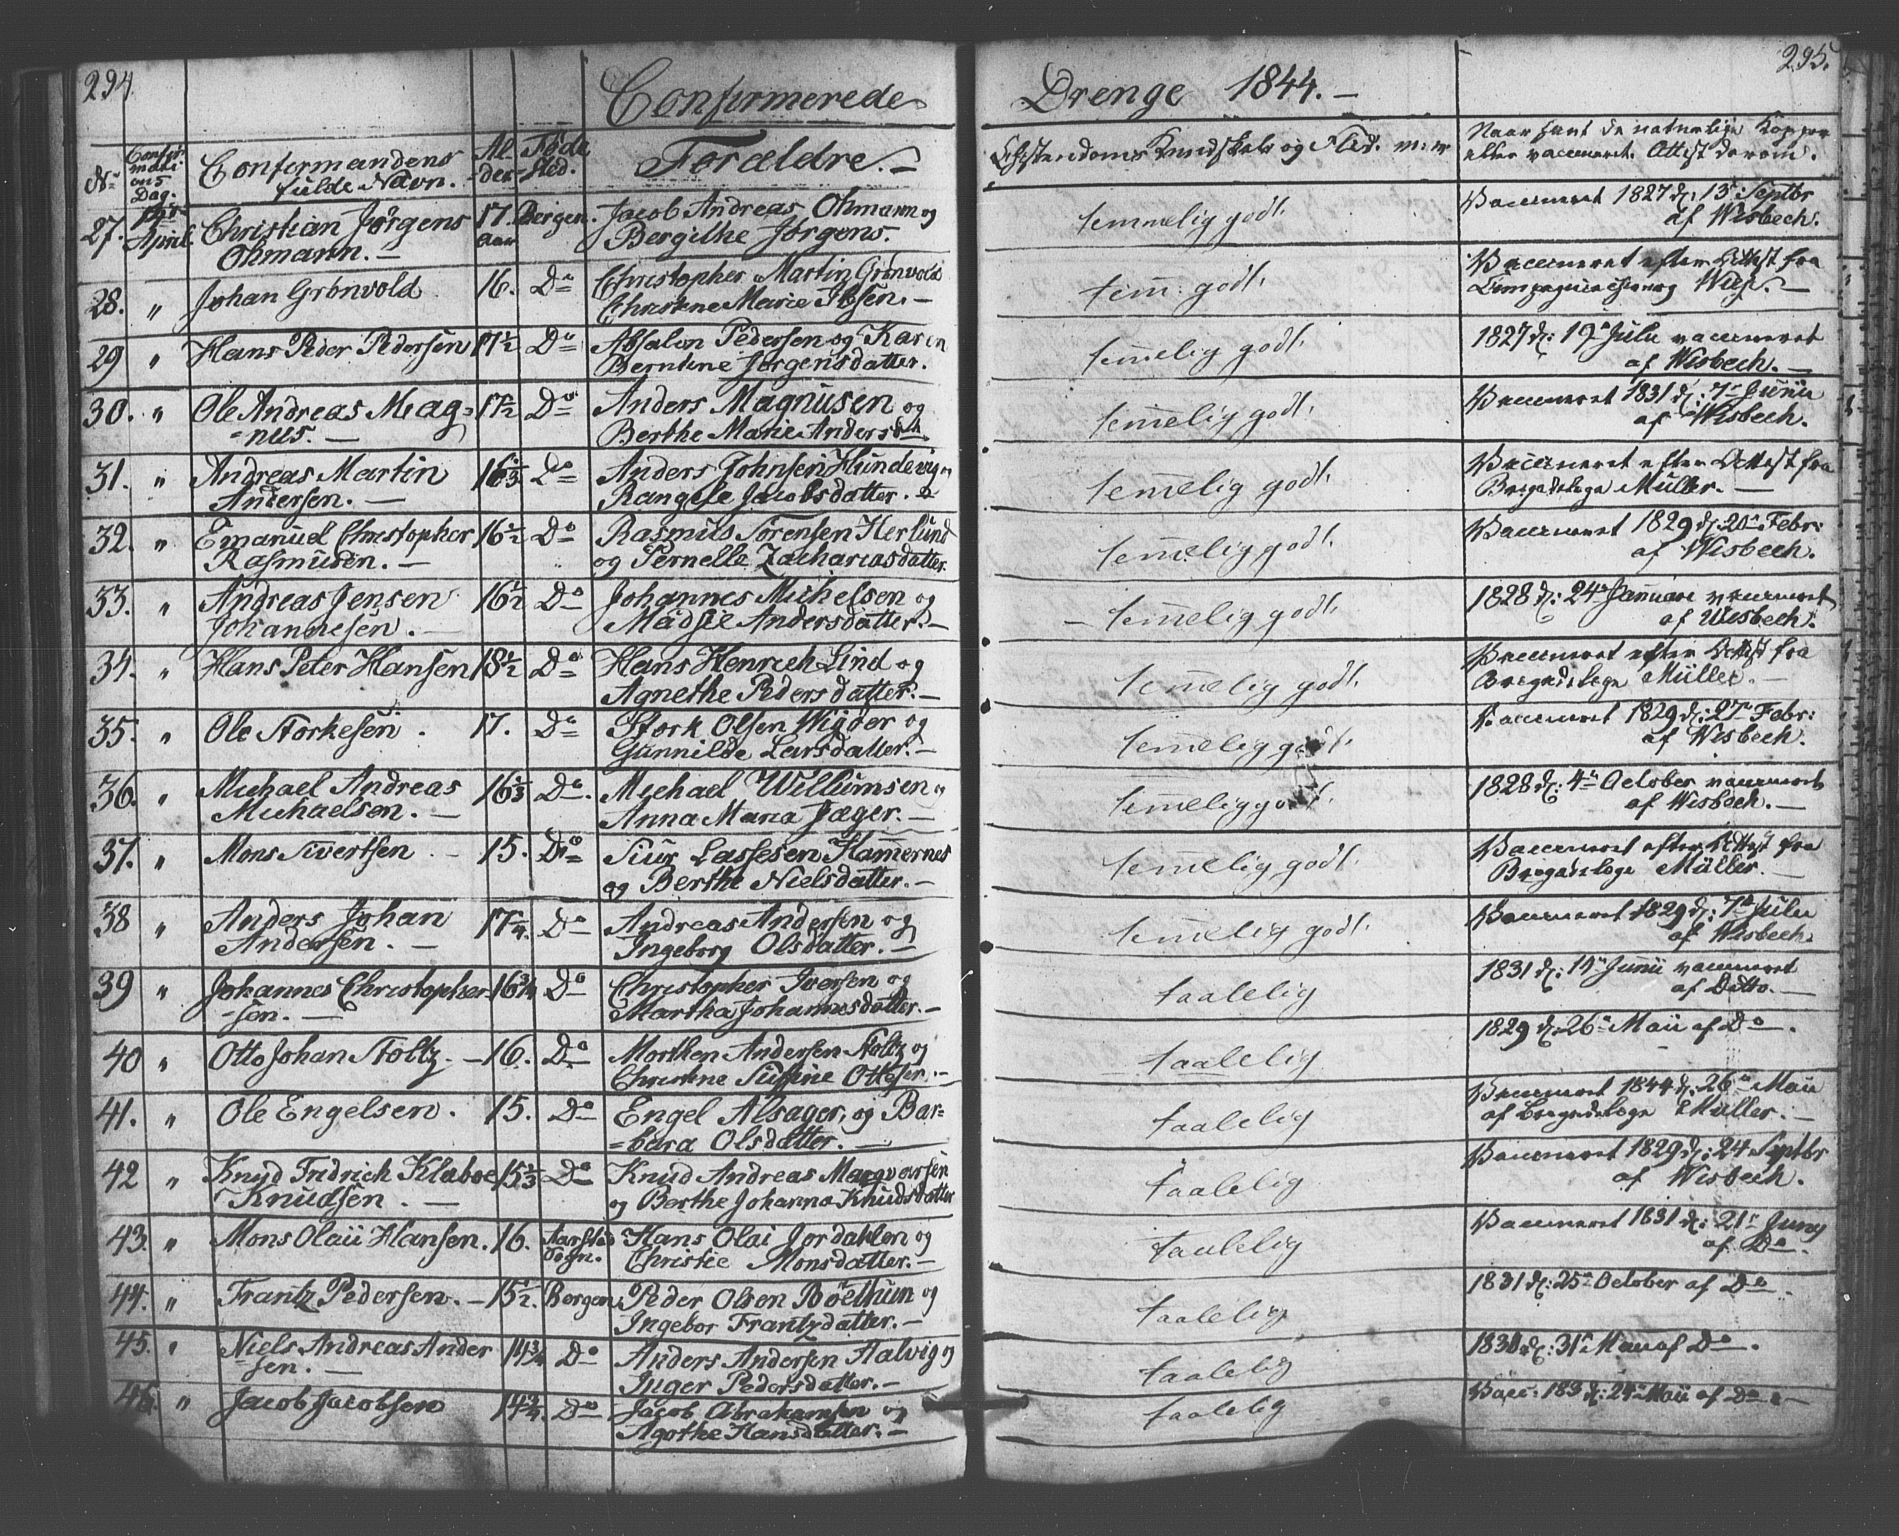 294
Confirmerede
Drenge 1844. —
295.
No
Confirmations Dag.
Confirmandens fulde Navn.
Alder
Føde Sted.
Forældre. —
Christendoms Kundskab og Flid. m: v:
Naar havt de naturlige Kopper
eller vaccineret. Attest derom.
27. April. Christian Jørgens 17. Bergen. Jacob Andreas Ohmann og temmelig godt. Vaccineret 1827 d: 13 Septbr
Ohmann. — Aar Bergithe Jørgens. af Wisbech.
28. " Johan Grønvold 16. Do Christopher Martin Grønvold tem: godt. Vacineret efter Attest fra
Christine Marie Ibsen. —
29 " Hans Peder Pedersen 17½ Do Absalon Pedersen og Karen temmelig godt. 1827 d: 19 Julii vaccineret
Berntine Jørgensdatter. af Wisbech. —
30. " Ole Andreas Mag= 17½ Do Anders Magnusen og temmelig godt. Vaccineret 1831 d: 7 Junii
=nus. — Berthe Marie Andersd. af Wisbech.
31. " Andreas Martin 16⅓ Do Anders Johnsen Hundevig og temmelig godt. Vaccineret efter Attest fra
Andersen. — Rangele Jacobsdatter. Brigadelæge Müller. —
32. " Emanuel Christopher 16½ Do Rasmus Sørensen Herlund temmelig godt. Vaccineret 1829 d: 20 Febr:
Rasmusen. — og Pernelle Zachariasdatter. af Wisbech.
33. " Andreas Jensen 16½ Do Johannes Michelsen og temmelig godt. 1828 d: 24 Januari vaccineret
Johannesen. — Madsie Andersdatter. — af Wisbech.
34. " Hans Peter Hansen 18½ Do Hans Henrich Lind og temmelig godt. Vaccineret efter Attest fra
Agnethe Pedersdatter. — Brigadelæge Müller. —
35. " Ole Storkesen. 17. Do Stork Olsen Wigder og temmelig godt. Vaccineret 1829 d: 27 Febr:
Gunnilde Larsdatter. — af Wisbech.
36. " Michael Andreas 16⅓ Do. Michael Willumsen og temmelig godt. 1828 d: 4 October vaccineret
Michaelsen. — Anna Maria Jæger. — af Wisbech. —
37. " Mons Sivertsen — 15. Do Siur Lassesen Hamernes temmelig godt. Vaccineret efter Attest fra
og Berthe Nielsdatter. — Brigadelæge Müller. —
38 " Anders Johan 17¼ Do Andreas Andersen og temmelig godt. Vaccineret 1829 d: 7 Julii
Andersen. — Ingeborg Olsdatter. — af Wisbech.
39 " Johannes Christopher= 16¾ Do Christopher Iversen og taalelig 1831 d: 14 Junii vaccineret
=sen. — Martha Johannesdatter. — af Ditto. —
40 " Otto Johan Stoltz. — 16. Do Morthen Andersen Stoltz og taalelig 1829 d: 26 Maii af Do.
Christine Susine Ottesen. —
41. " Ole Engelsen. 15. Do Engel Alsager, og Bar= taalelig Vaccineret 1844 d: 26 Maii
=bara Olsdatter. — af Brigadelæge Müller. —
42 " Knud Fridrich Klaboe 15⅓ Do Knud Andreas Marqvarsen taalelig Vaccineret 1829 d: 24 Septbr
Knudsen. — og Berthe Johanna Knudsdatter af Wisbech.
43. " Mons Olaii Hansen. 16. Aarstad Sogn. Hans Olai Jordahlen og taalelig Vaccineret 1831 d: 21 Juny
Christie Monsdatter. — af Do.
44. " Frantz Pedersen. — 15½. Bergen Peder Olsen Bøethun og taalelig 1831 d: 25 October af Do.
Ingebor Frantzdatter. —
45. " Niels Andreas Ander 14¾ Do Anders Andersen Halvig og taalelig 1830 d: 31 Mai af Do.
=sen. — Inger Pedersdatter. —
46. " Jacob Jacobsen 14¾. Do Jacob Abrahamsen og taalelig Vacc: d: 24 Maii af Do —
Agothe Hansdatter. —